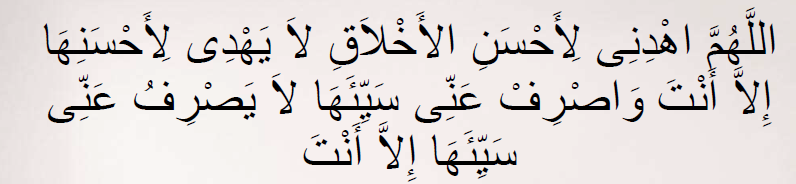 اللَّهُمَّ اهْدِنِى لِأَحْسَنِ الأَخْلاَقِ لاَ يَهْدِى لِأَحْسَنِهَا
إِلاَّ أَنْتَ وَاصْرِفْ عَنِّى سَيِّئَهَا لاَ يَصْرِفُ عَنِّى
سَيِّئَهَا إِلاَّ أَنْتَ